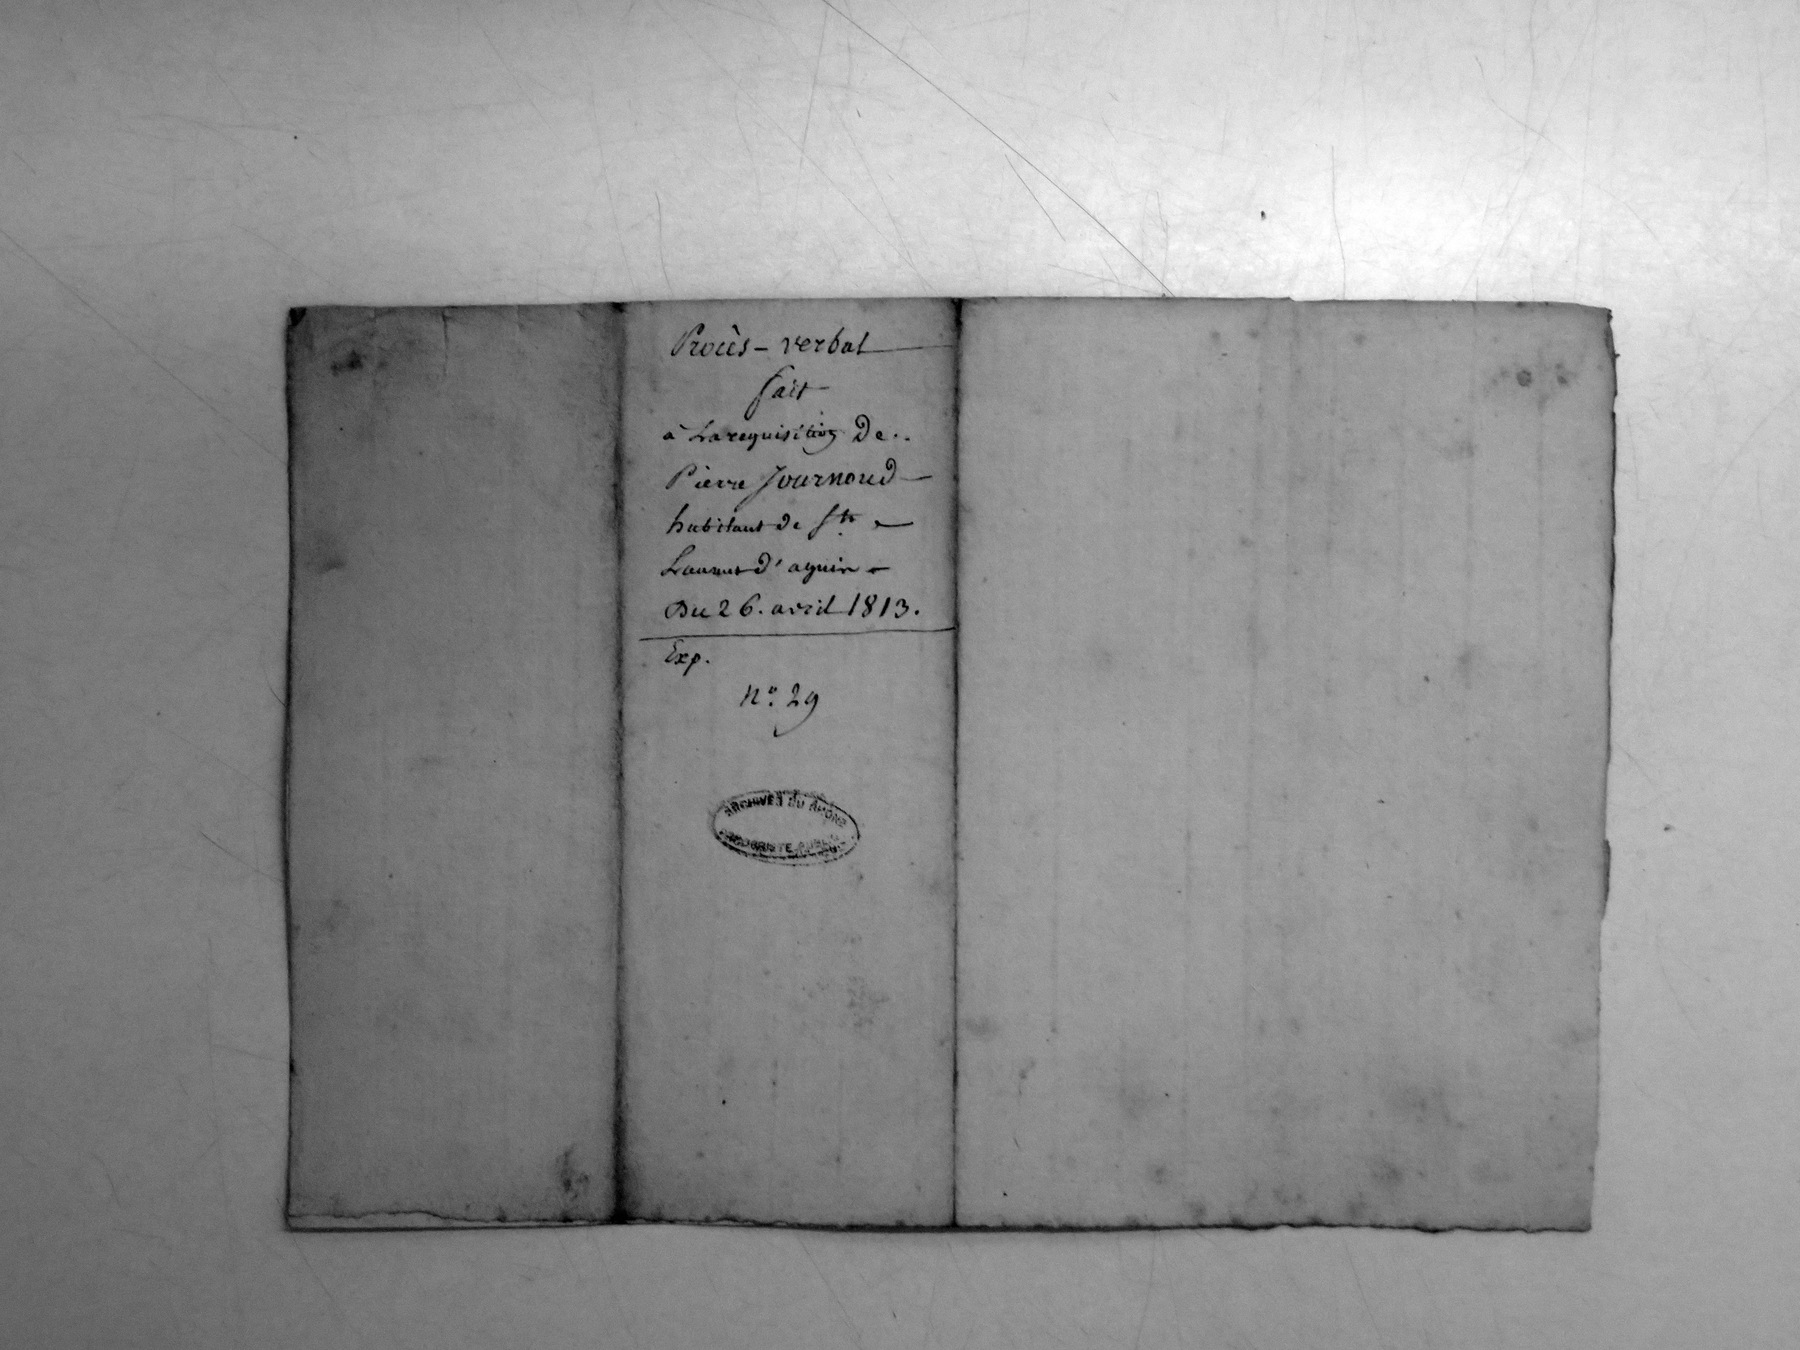 Procès-verbal
fait
à la requisition De..
Pierre Journoud
habitant de St.
Laurent d'aguin
Du 26. avril 1813.
Exp.
N°. 29
ARCHIVES DU RHÔNE